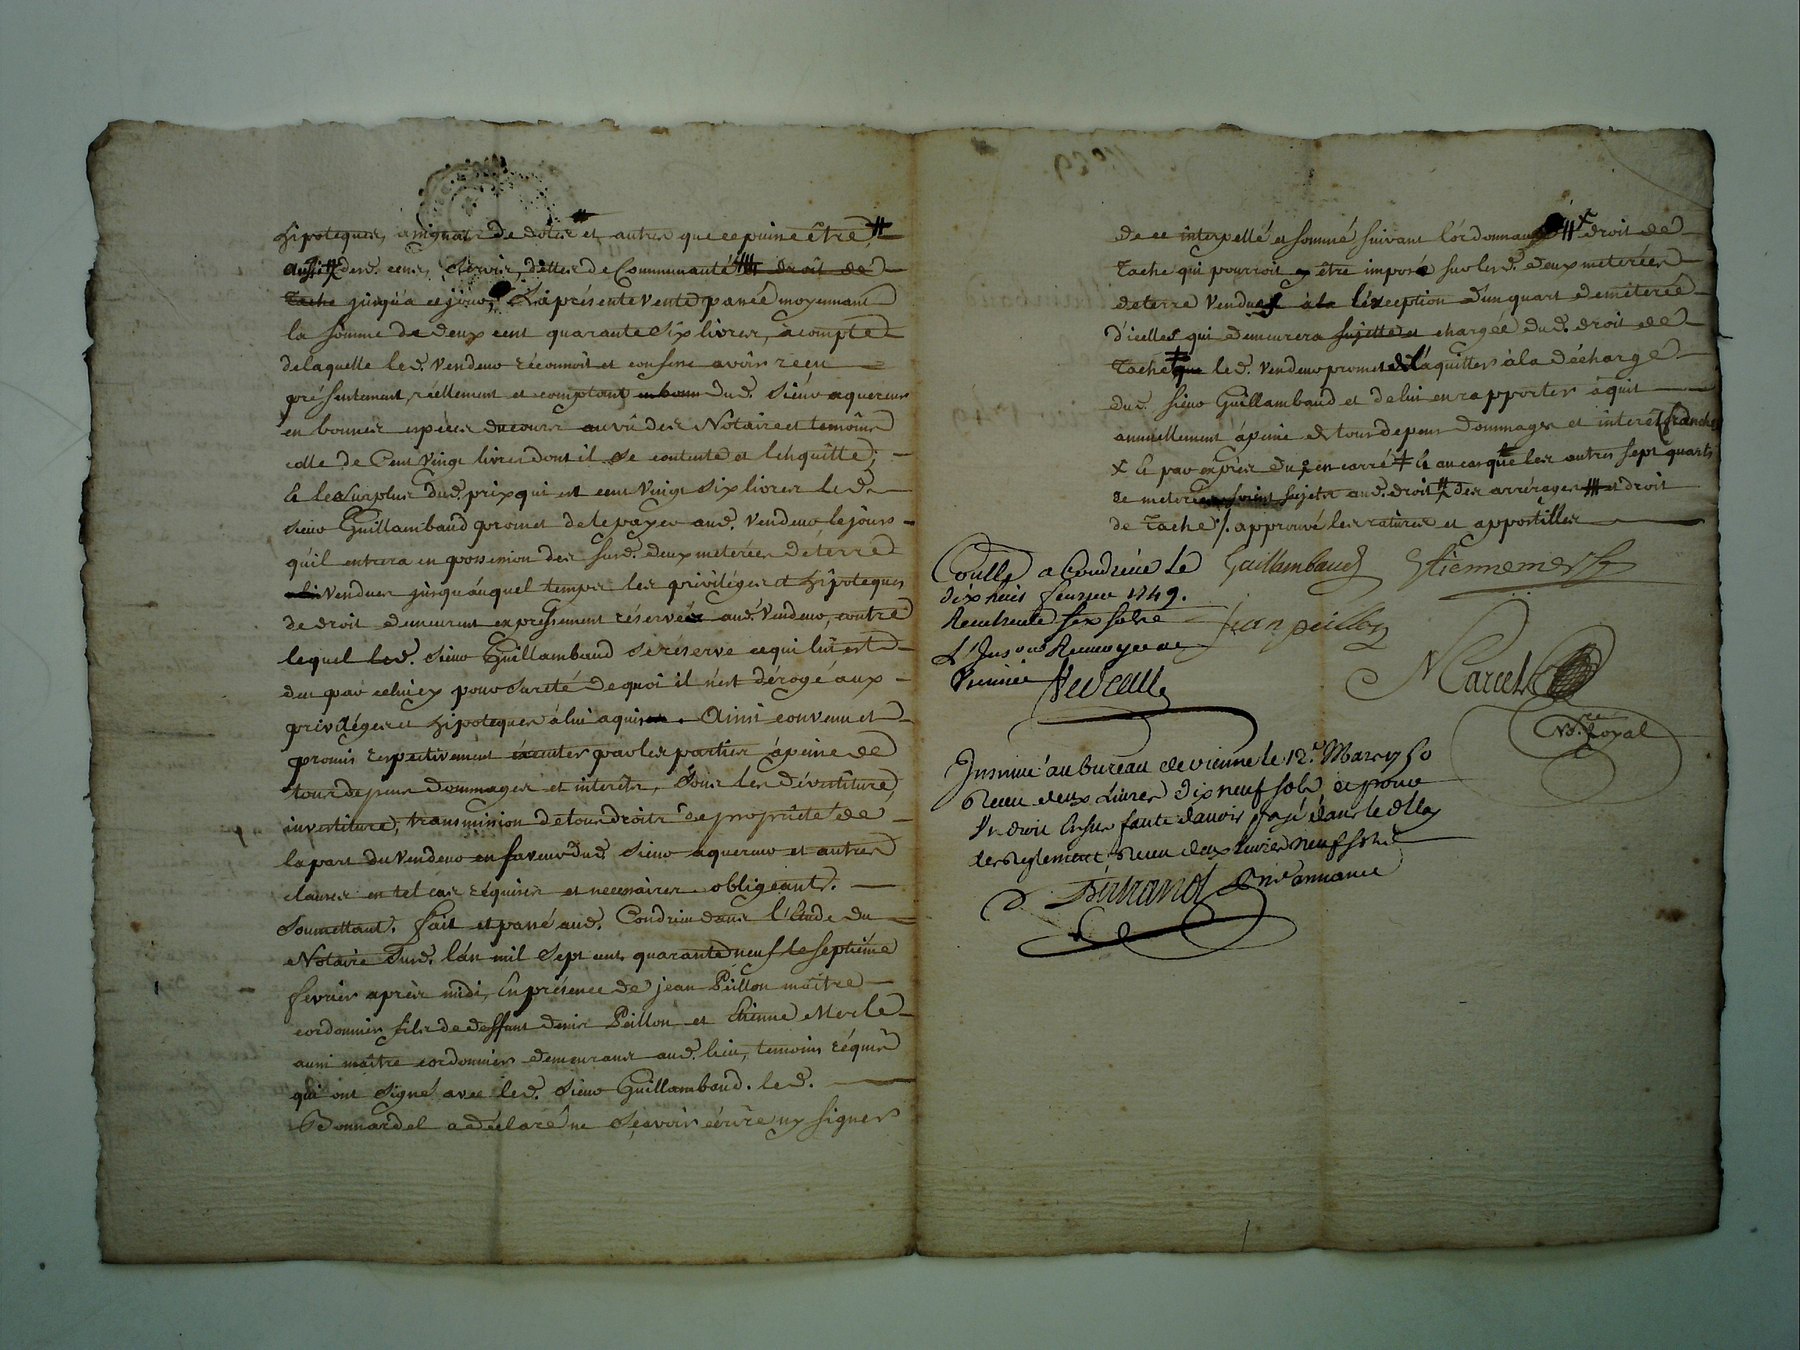 hipoteques, assignats de dotes et autres que ce puisse être #
aussi # desd. cens, servis, dettes de Communauté droit de
Tache jusqu'a ce jour, La présente vente passée moyennant
la somme de deux cent quarante six livres, a compte
de laquelle led. vendeur réconnoit et confesse avoir reçu
présentement, réellement et comptant dud. Sieur aquereur
en bonnes espèces du cours au vû des Notaire et temoins
celle de Cent vingt livres dont il se contente et l'en quitte;
& le surplus dud. prix qui est cent vingt six livres led.
sieur Guillambaud promet de le payer aud. vendeur le jour
qu'il entrera en possession des susd. deux meterées de terre
vendues jusqu'auquel temps les privilèges et hipoteques
de droit demeurent expressement réservés aud. vendeur, contre
lequel led. sieur Guillambaud se réserve ce qui lui est
deu par celui pour sureté de quoi il n'est dérogé aux
privilèges et hipoteques à lui aquis. Ainsi convenu et
promis respectivement par les parties à peine de
tous depens dommages et interets, sous les dévetiture,
investiture, transmission de tous droits de propriété de
la part du vendeur en faveur dud. sieur aquereur et autres
clauses en tel cas réquises et necessaires obligeant.
soumettant. fait et passé aud. Condrieu dans l'étude du
Notaire susd. l'an mil sept cent quarante neuf le septième
fevrier après midi, En présence de jean Peillon maître
cordonnier fils de deffunt denis Peillon et Etienne Merle
aussi maître cordonnier demeurans aud. lieu, temoins réquis
qui ont signé avec led. sieur Guillambaud. led.
Bonnardel a déclaré ne sçavoir écrire ny signer
de ce interpellé et sommé suivant l'ordonnance # droit de
Tache qui pourroit y être imposé sur lesd. deux meterées
de terre vendues à la l'exception d'un quart de meterée
d'icelles qui demeurera sujette et chargée dud. droit de
Tache que led. vendeur promet de l'aquitter à la décharge
dud. sieur Guillambaud et de lui en rapporter aquit
annuellement à peine de tous depens dommages et interet franche
& par exprès du & au cas que les autres sept quarts
de meterée soient sujets aud. droit # des arrérages et droit
de Tache /. approuvé les ratures et appostilles
Guillambaud Etienne merle
jean peillon
Marcel
Nre. Royal
Conllé a Condrieu le
dix huit fevrier 1749.
Reçu trente six sols
L'Inson Renvoyée a
Vienne
Insinué au bureau de vienne le 12e. Mars 1750
Reçu deux Livres dix neuf sols et pour
Un droit En sus faute d'avoir payé dans le delay
des Reglement Reçu deux livres neuf sols
Bertrand